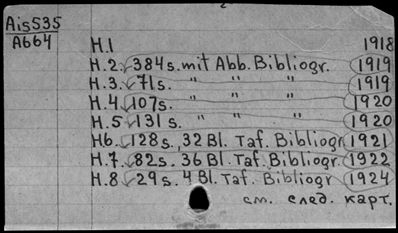 Ais535
A664
H.1 1918
H.2. 384s. mit Abb. Bibliogr. 1919
H.3. 71s. " " " 1919
H.4. 107s. " " " 1920
H.5 131s. " " " 1920
H6. 128s., 32 Bl. Taf. Bibliogr 1921
H.7. 82s. 36 Bl. Taf. Bibliogr. 1922
H.8 29s. 4 Bl. Taf. Bibliogr 1924
см. след. карт.